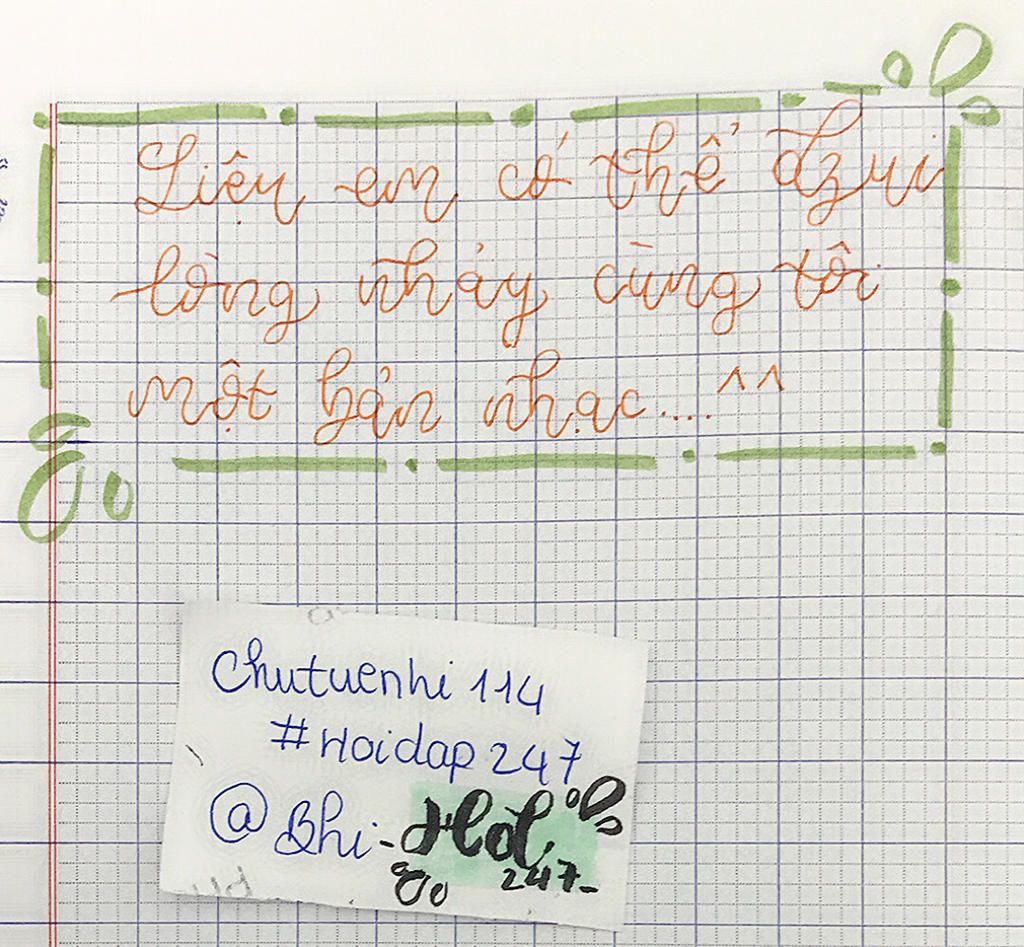 Liệu em có thể dzui
lòng nhảy cùng tôi
một bản nhạc....^^
Chutuenhi 114
#Hoidap 247
@Bhi-Hoi
247-